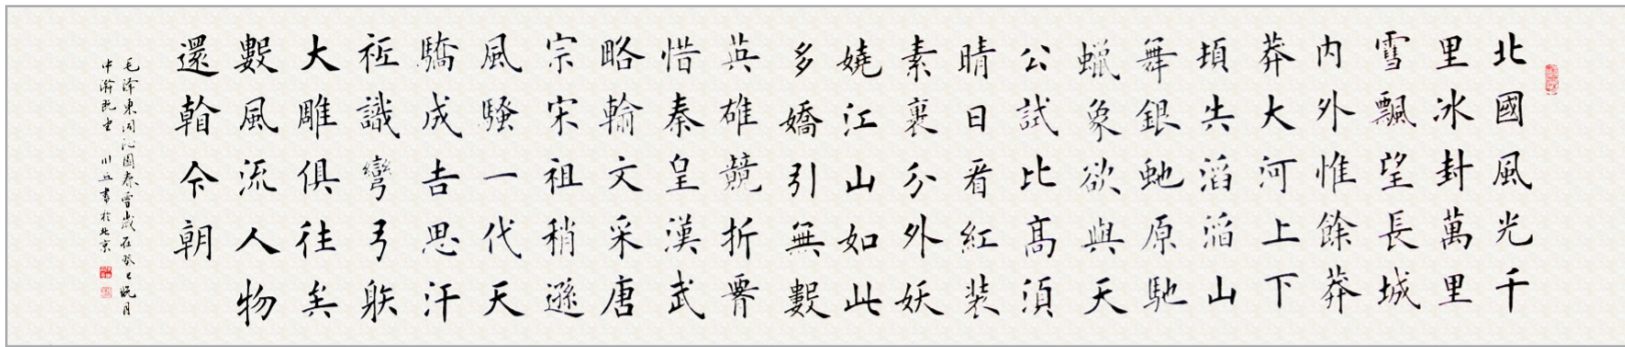 北國風光千
里冰封萬里
雪飄望長城
内外惟餘莽
莽大河上下
頓失滔滔山
舞銀虵原馳
蠟象欲與天
公試比高須
晴日看紅裝
素裹分外妖
嬈江山如此
多嬌引無數
英雄競折腰
惜秦皇漢武
略輸文采唐
宗宋祖稍遜
風騷一代天
驕成吉思汗
衹識彎弓躲
大雕俱往矣
數風流人物
還看今朝
毛泽東词沁園春雪歲在癸巳月
中澣 書於北京